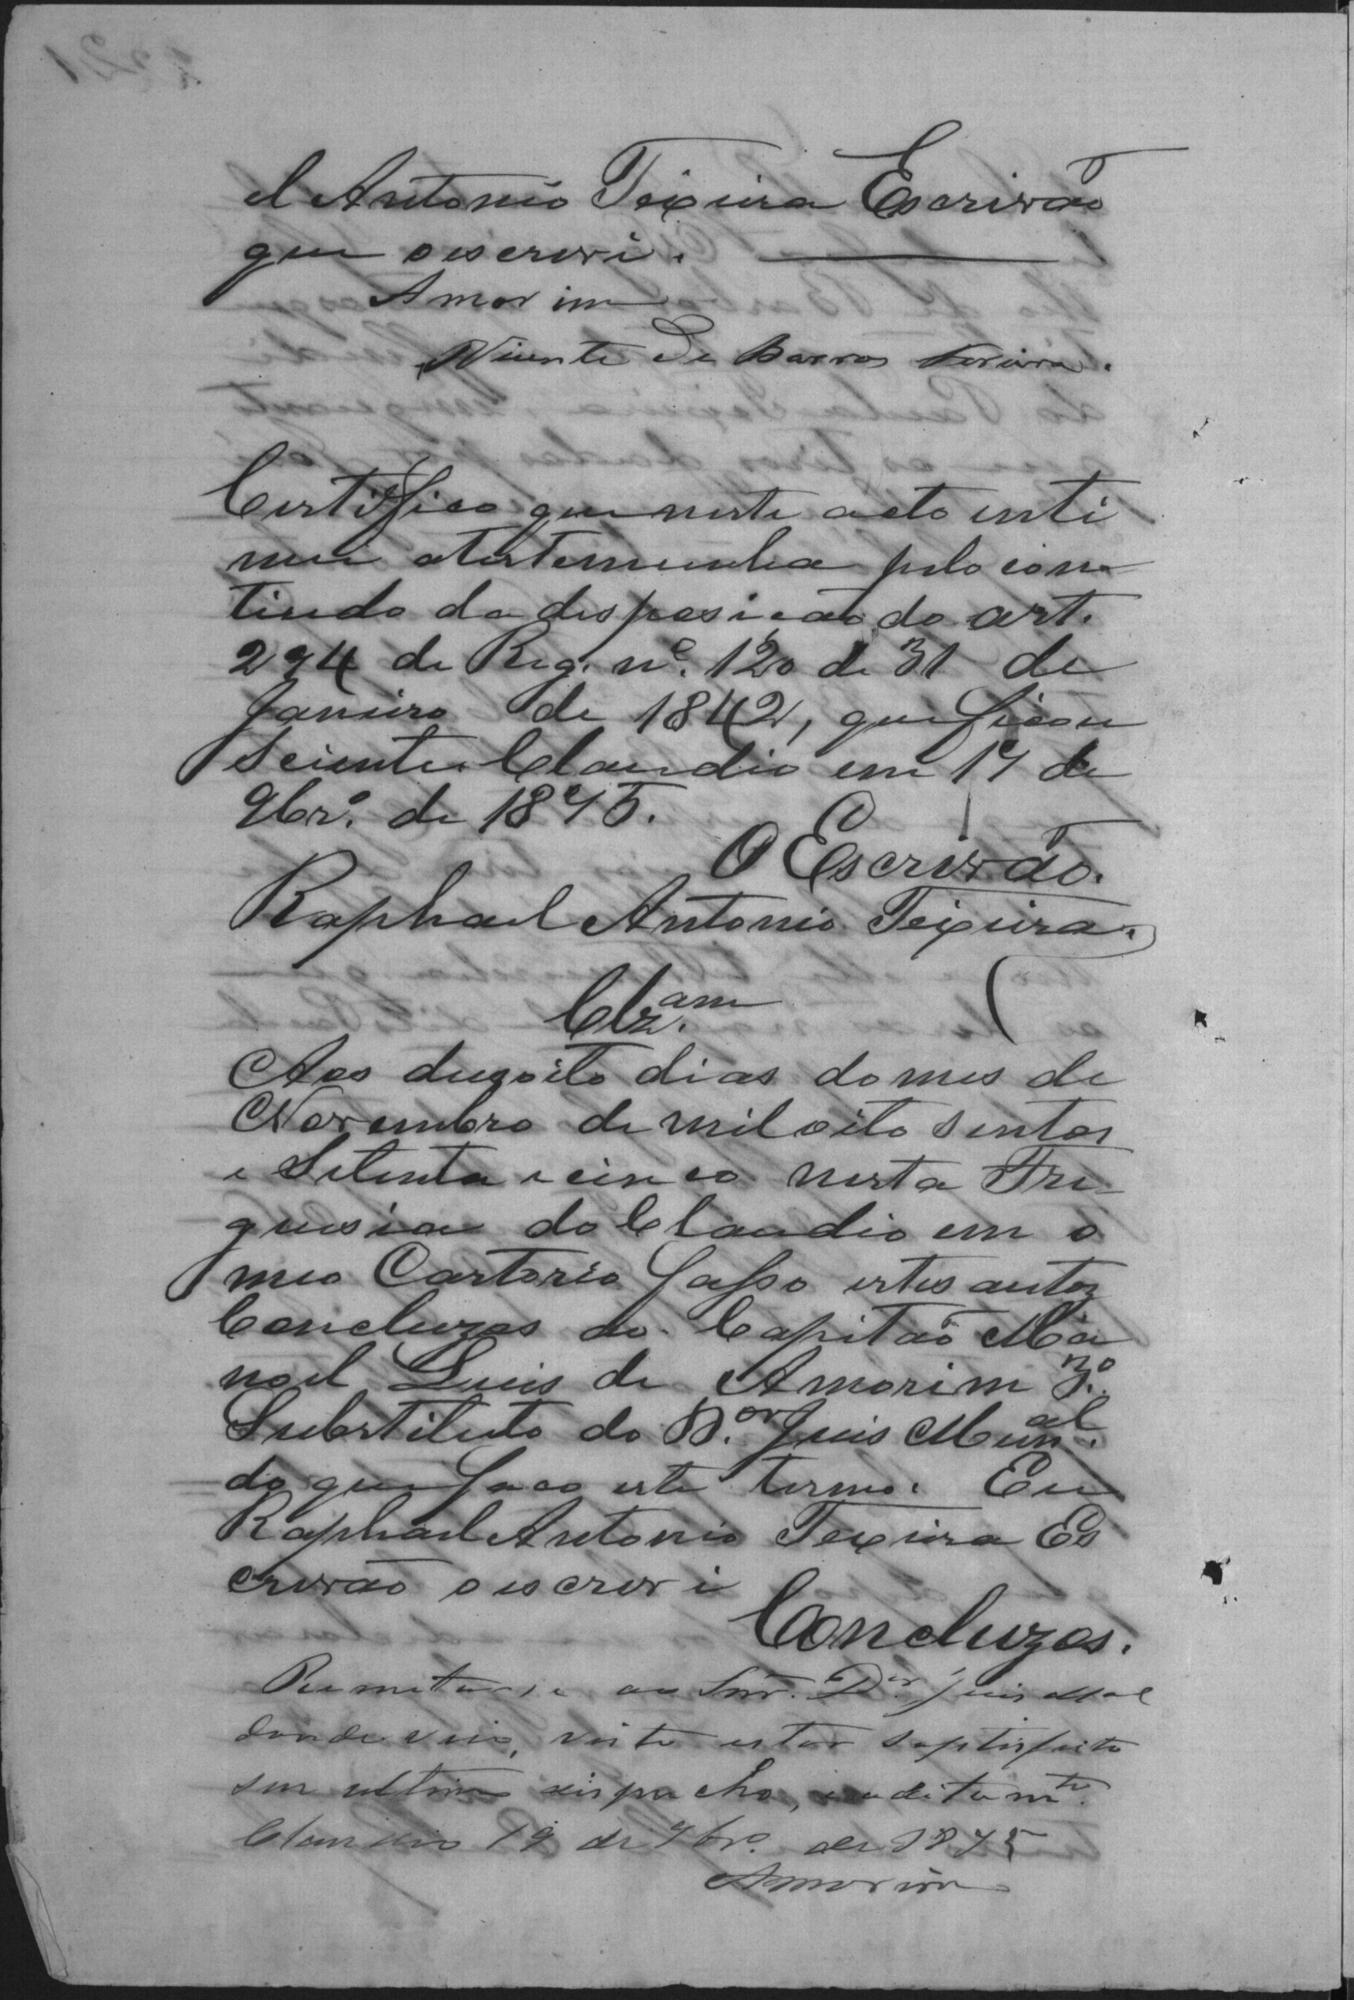 el Antonio Teixeira Escrivão
que o escrevi.
Amorim
Vicente de Barros
Certifico que neste acto inti
mei a testemunha pelo con
tiudo da desposicão do art.
294 de Reg. nº. 120 de 31 de
Janeiro de 1842, que ficou
sciente. Claudio em 17 de
9brº. de 1875.
O Escrivão.
Raphael Antonio Teixeira.
Clz.am
Aos dezoito dias do mes de
Novembro de mil oito sentos
e Setenta e cinco nesta Fre-
guesia do Claudio em o
meo Cartorio fasso estes autos
Concluzos ao Capitão Ma
noel Luis de Amorim 3º.
Substituto do D.or Juis Mun.al
do que faco este termo. Eu
Raphael Antonio Teixeira Es
crivão o escrevi
Concluzos.
Remeta-se ao Snr. Dor Juis Mal
donde veio, visto estar satisfeito
seu ultimo despacho, mte.
Claudio 19 de 9bro. de 1875
Amorim